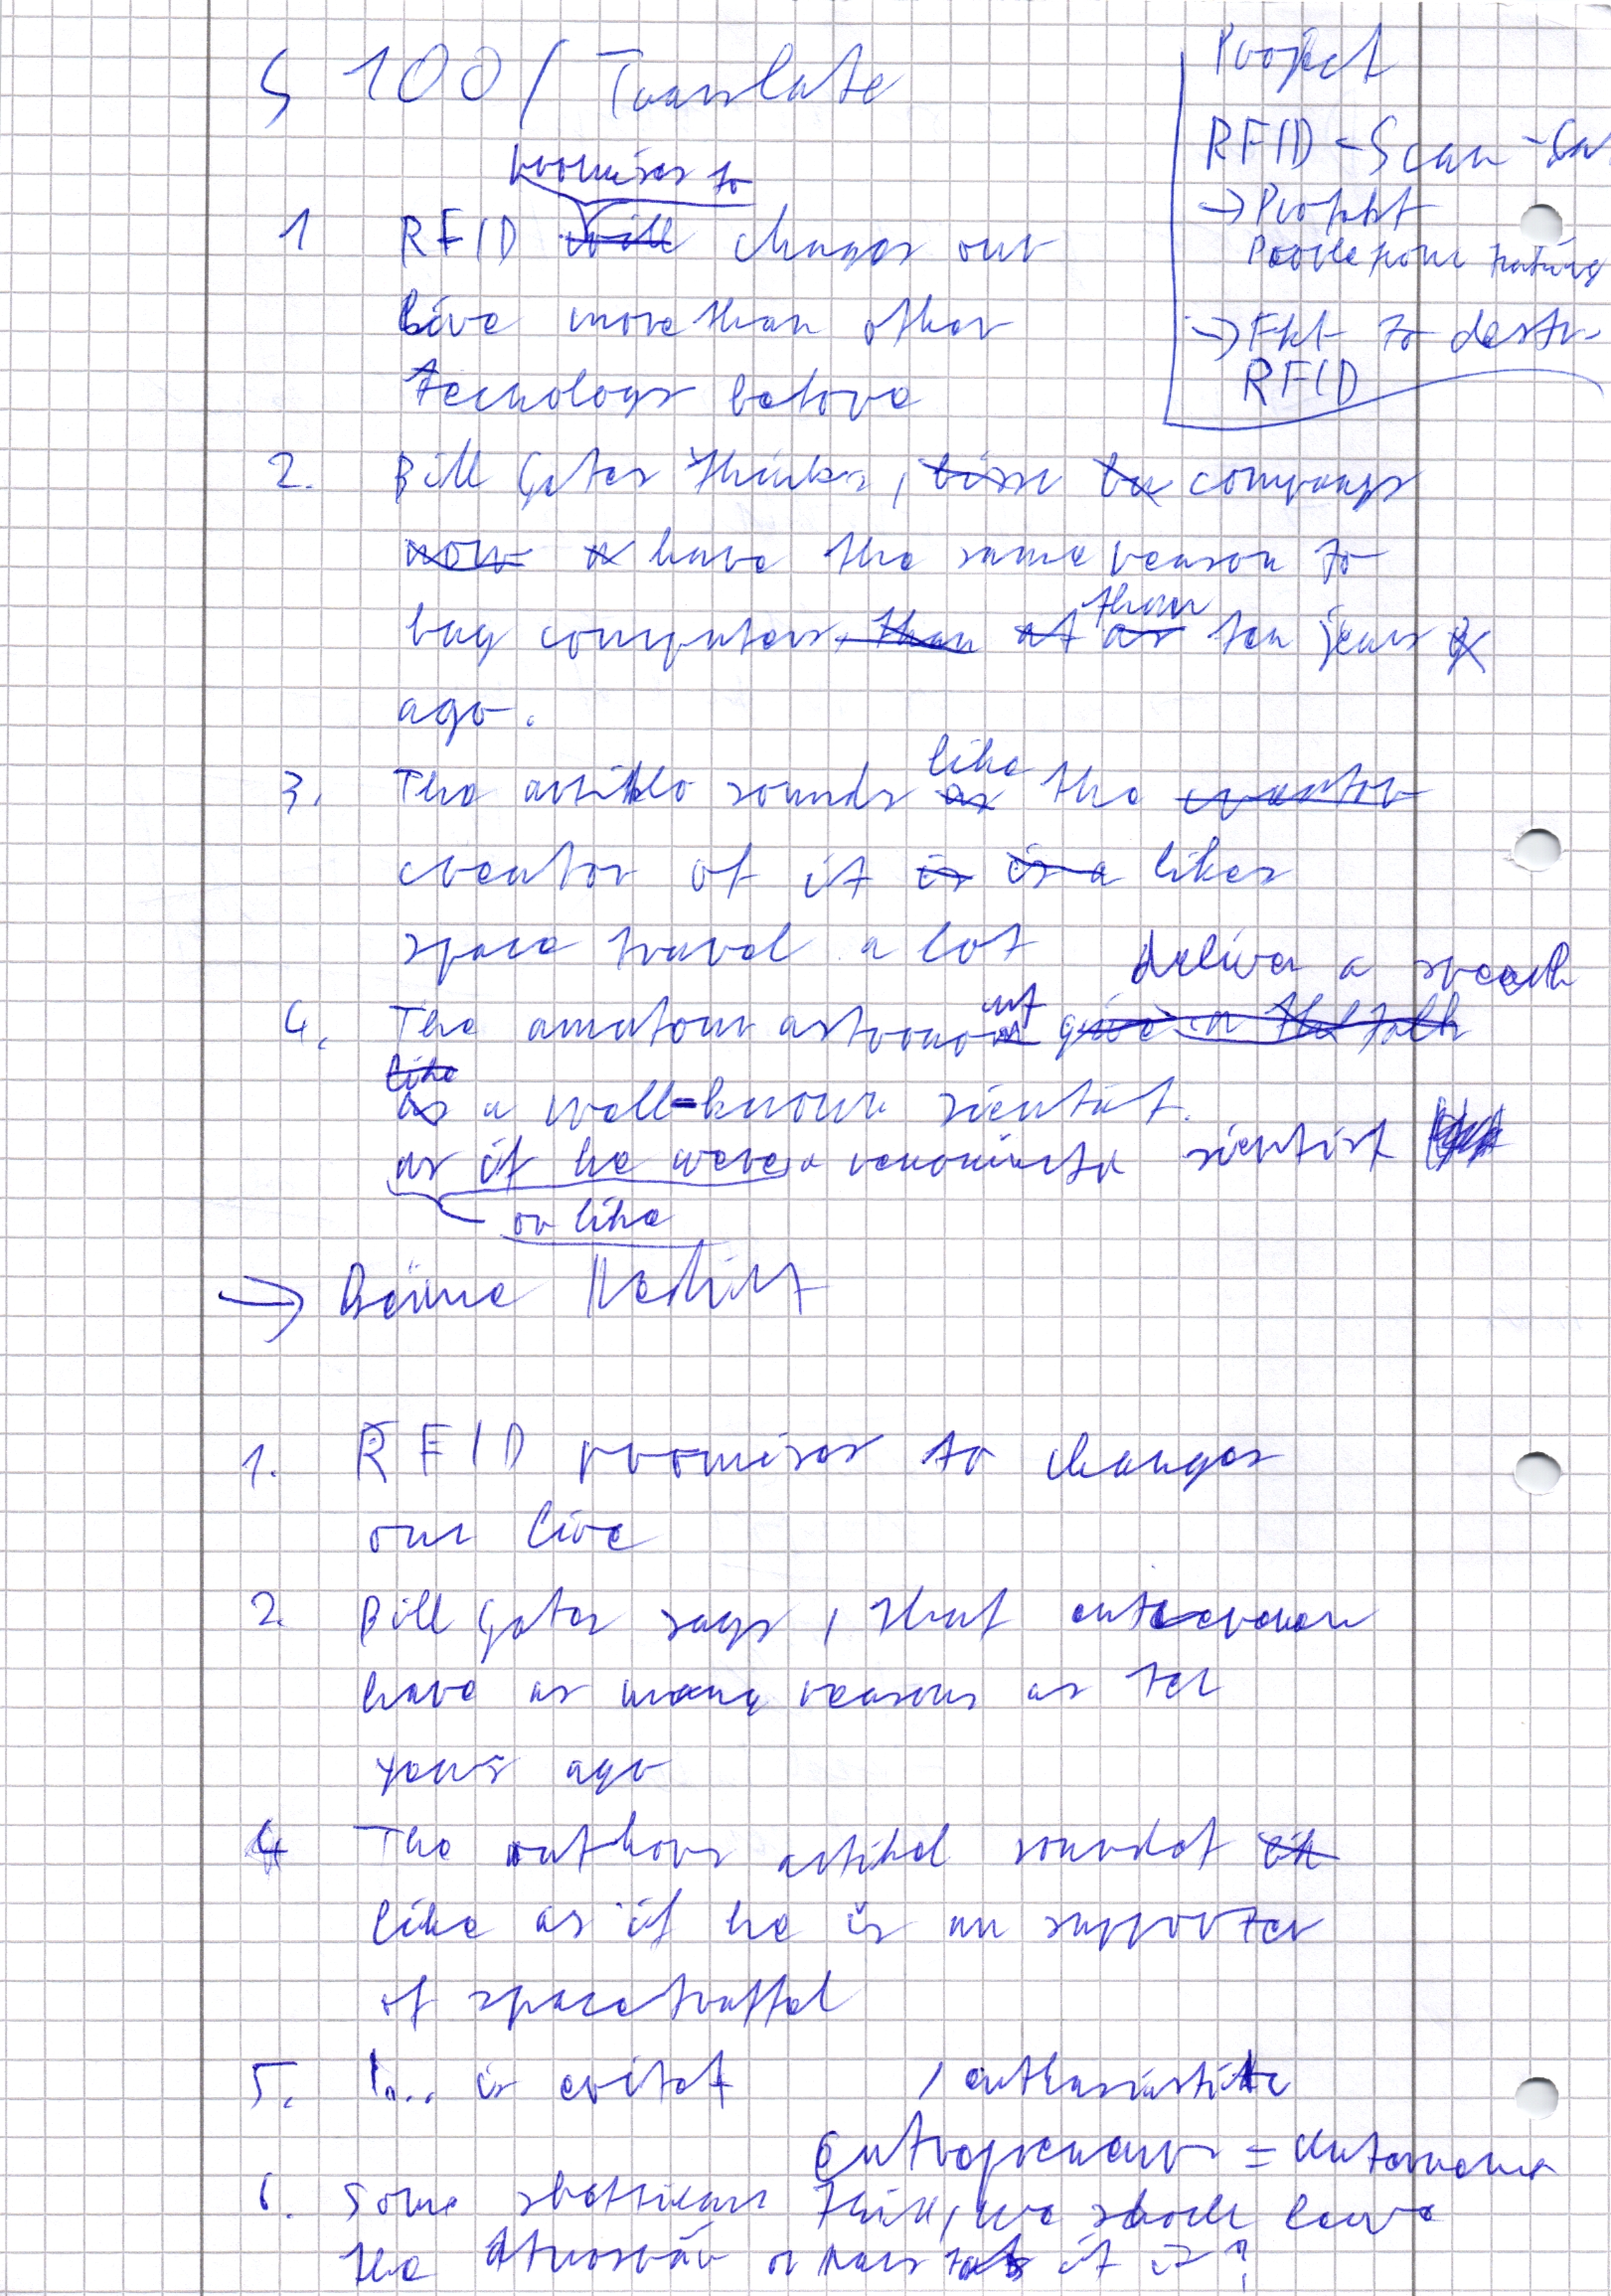 S 100 / Translate
Projekt
RFID - Scan -
→ Projekt
→ Fkt to destr-
RFID
promises to
1 RFID will changes our
live more than other
tecnology before
2. Bill Gates thinks, companys
now have the same reason to
than
buy computers than at as ten jears
ago.
like
3. The artiklo sounds as the creator
creator of it is is a likes
space travel a lot
deliver a speech
4. The amatour astronomt give a talk
like
as a well-known sientist.
as if he were a sientist
or like
→
1. RFID promises to changes
our live
2. Bill Gates says, that
have as many reasons as ten
years ago
4 The authors artikel soundet
like as if he is an supporter
of spacetraffel
5. I... is exitet / enthusiastikc
entrepreneurs = Unternehmer
6. Some think, we leave
the or it is?